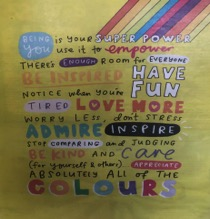 BEING is your SUPER POWER
YOU use it to empower
THERE'S ENOUGH ROOM for EVERYONE
BE INSPIRED HAVE
NOTICE when you're FUN
TIRED LOVE MORE
WORRY LESS, don't STRESS
ADMIRE INSPIRE
STOP COMPARING and JUDGING
BE KIND AND care
(for yourself & others) APPRECIATE
ABSOLUTELY ALL OF THE
COLOURS